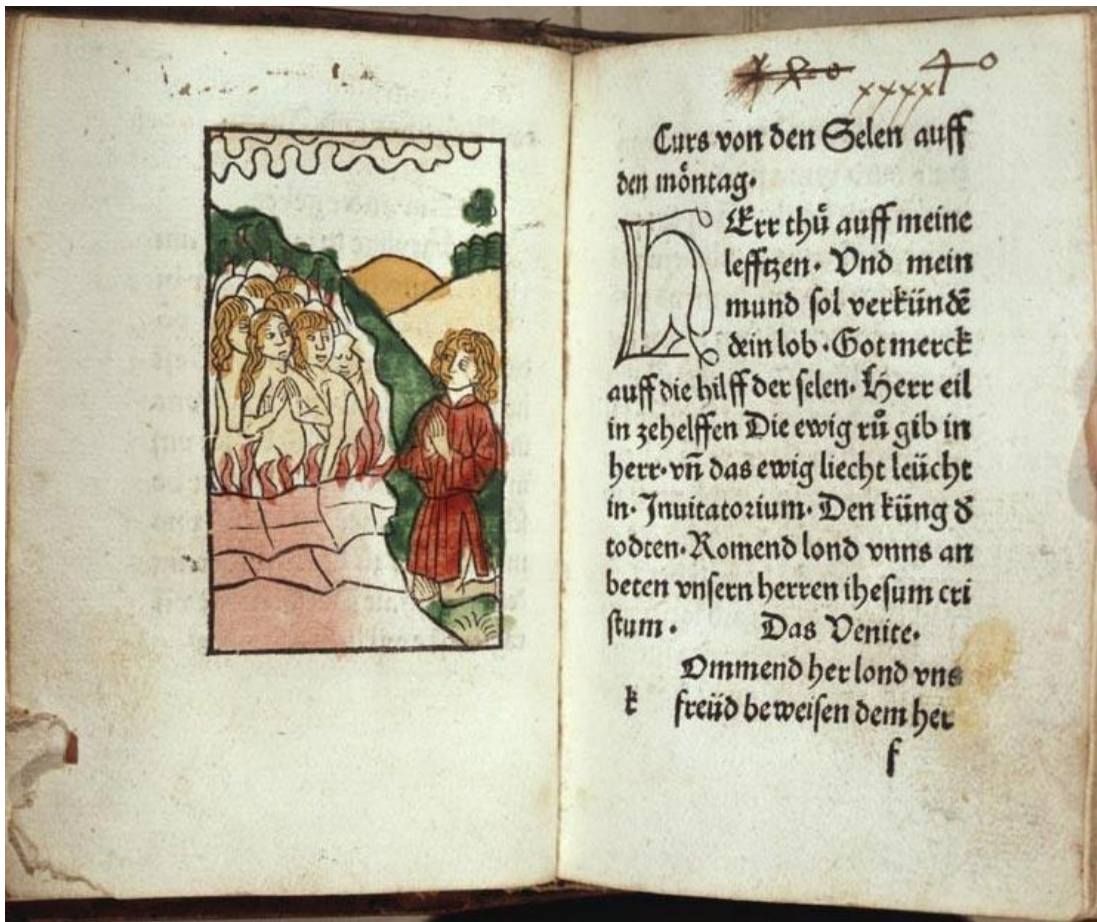 Curs von den Selen auff
den möntag.
HErr thů auff meine
lefftzen. Vnd mein
mund sol verkündē
dein lob. Got merck
auff die hilff der selen. Herr eil
in zehelffen Die ewig rů gib in
herr. vn̄ das ewig liecht leücht
in. Inuitatorium. Den küng d̕
todten. Komend lond vnns an
beten vnsern herren ihesum cri
stum. Das Venite.
k Ommend her lond vns
freüd beweisen dem her
f